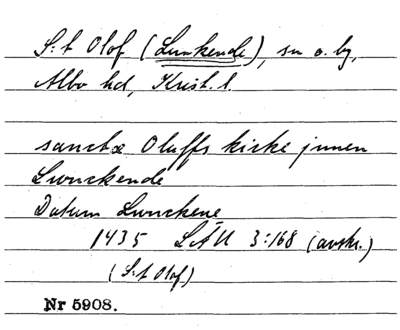 S:t Olof (Lunkende), sn o. by,
Albo hd, Krist. l.
sanctæ Oluffs kirke jnnen
Lwnckende
Datum Lunckene
1435 LÄU 3:168 (avskr.)
(S:t Olof)
Nr 5908.